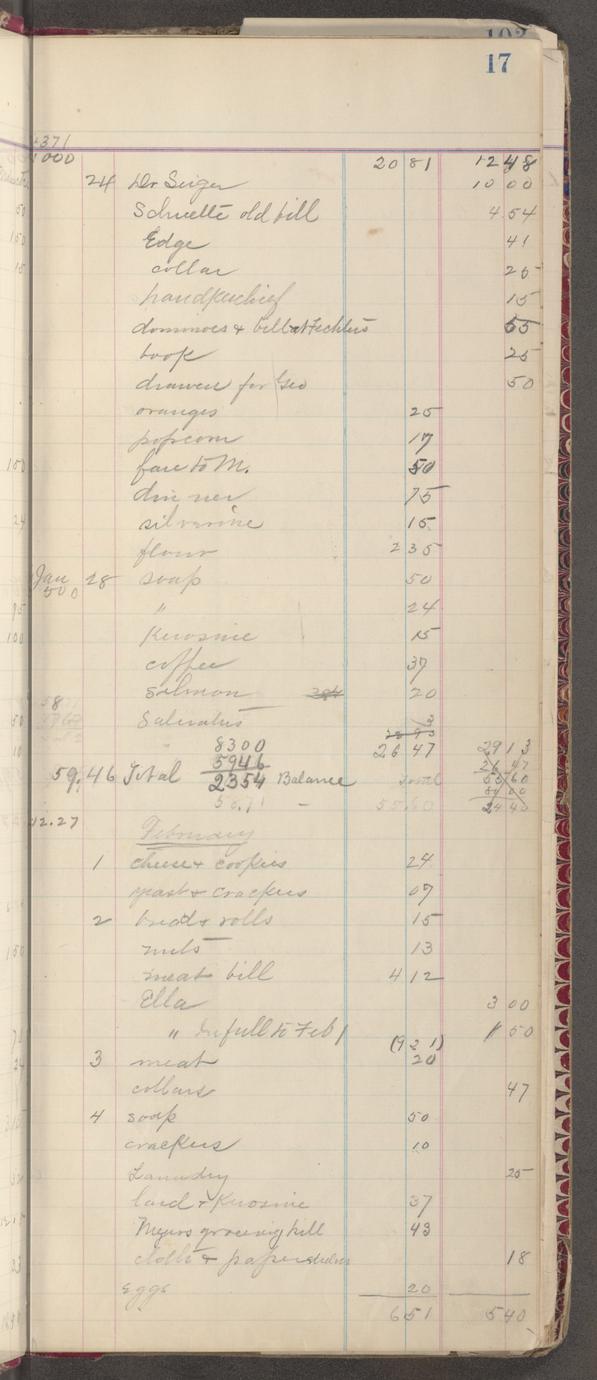 103
17
1371
1000 20 81 12 48
24 Dr Seiger 10 00
Schuette old bill 4 54
Edge 41
collar 25
handkerchief 15
dominoes & bill at Fechters 55
book 25
drawers for Geo 50
oranges 25
popcorn 17
fare to M. 50
dinner 75
silverine 15
flour 2 35
Jan 28 soap 50
500
" 24
Kerosine 15
coffee 37
salmon 20
Saleratus 3
8300 26 47 29 13
5946 26 47
59.46 Total 2354 Balance Total 55 60
80 00
56.71 - 55.60 24 40
12.27
February
1 cheese & cookies 24
yeast & crackers 07
2 bread & rolls 15
nuts 13
meat bill 4 12
Ella 3 00
" In full to Feb 1 1 50
(9 2 1)
3 meat 20
collars 47
4 soap 50
crackers 10
Laundry 25
lard & Kerosine 37
Myers grocery bill 43
cloth & paper 18
eggs 20
6 51 5 40